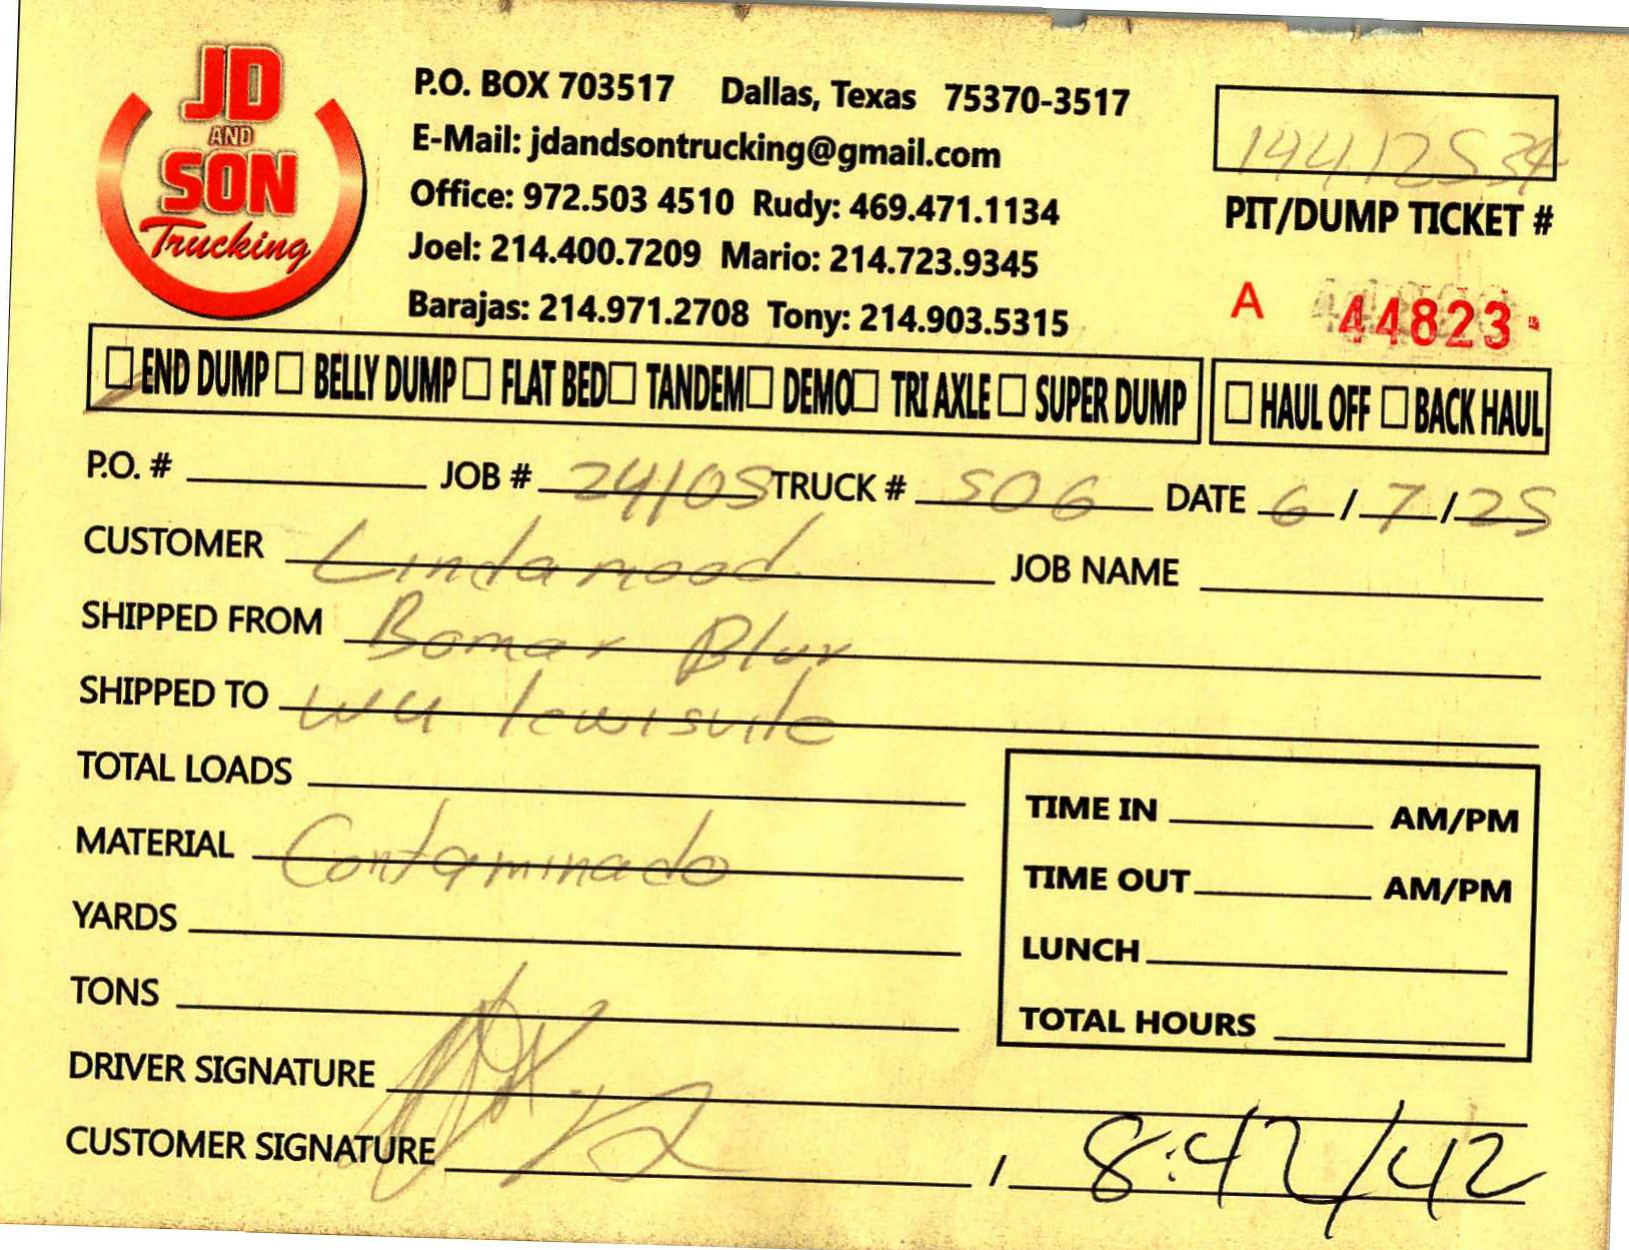 JD
AND
SON
Trucking
P.O. BOX 703517 Dallas, Texas 75370-3517
E-Mail: jdandsontrucking@gmail.com
Office: 972.503 4510 Rudy: 469.471.1134
Joel: 214.400.7209 Mario: 214.723.9345
Barajas: 214.971.2708 Tony: 214.903.5315
14412534
PIT/DUMP TICKET #
A 44823
☐ END DUMP ☐ BELLY DUMP ☐ FLAT BED ☐ TANDEM ☐ DEMO ☐ TRI AXLE ☐ SUPER DUMP ☐ HAUL OFF ☐ BACK HAUL
P.O. # JOB # 24105 TRUCK # 506 DATE 6/7/25
CUSTOMER Lindamood JOB NAME
SHIPPED FROM Bomar Blur
SHIPPED TO WM lewisvile
TOTAL LOADS
MATERIAL Contaminado
YARDS
TONS
TIME IN AM/PM
TIME OUT AM/PM
LUNCH
TOTAL HOURS
DRIVER SIGNATURE
CUSTOMER SIGNATURE , 8:42/42